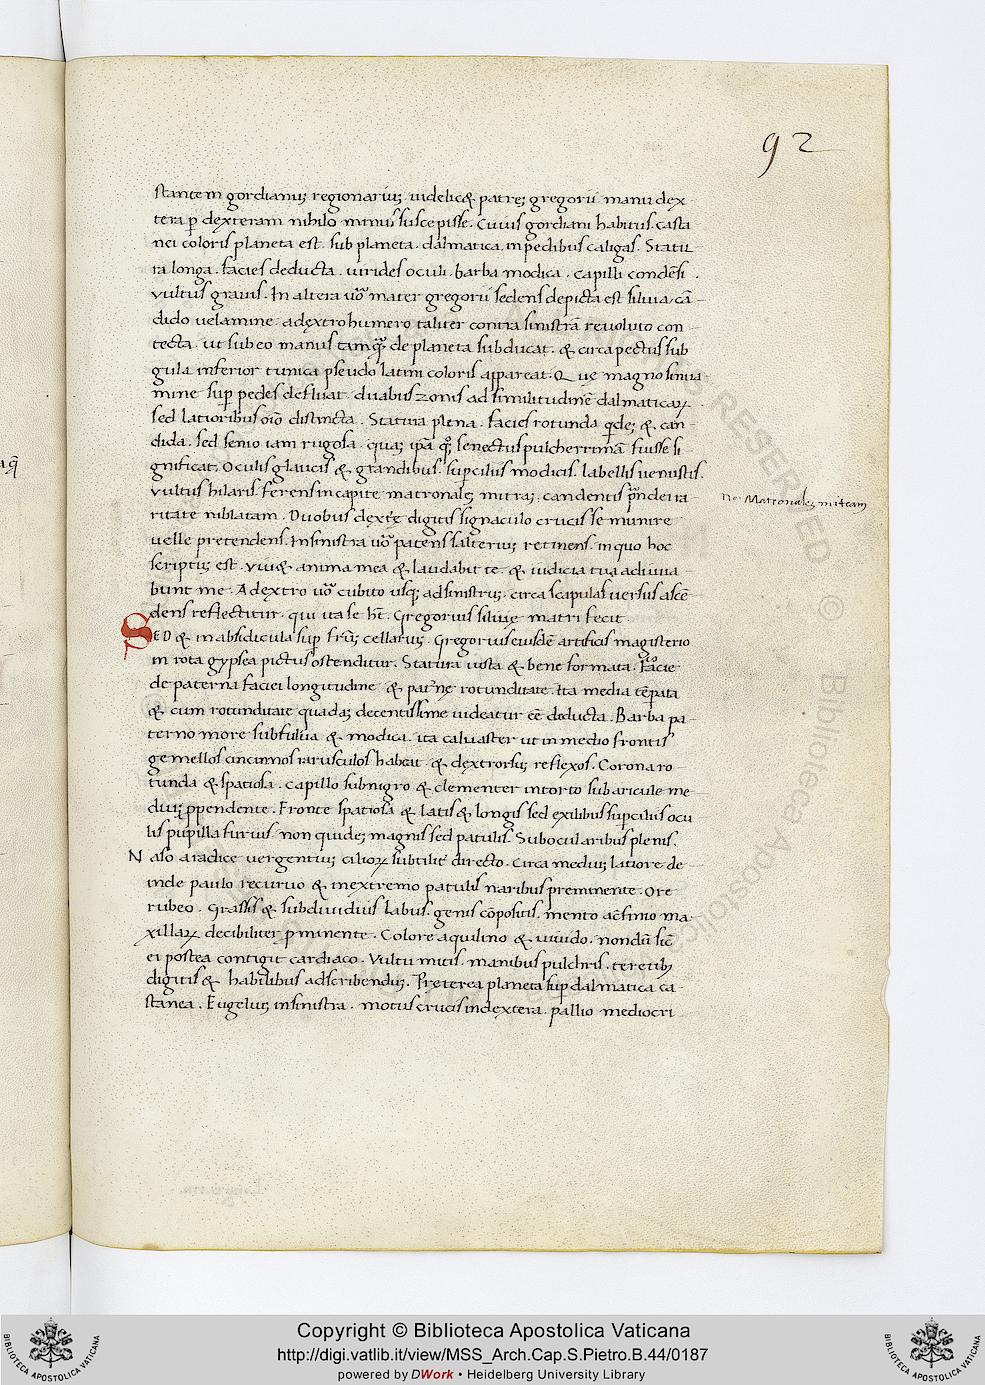 92
stantem gordianus regionarius. uidelic& patrem gregorii manu dex
tera p dexteram nihilo minus suscepisse. Cuius gordiani habitus. casta
nei coloris planeta est. sub planeta. dalmatica. in pedibus caligas. Statu
ra longa. facies deducta. uirides oculi. barba modica. capilli condensi.
vultus grauis. In altera uo mater gregorii sedens depicta est siluia. cā
dido uelamine. a dextro humero taliter contra sinistrā reuoluto con
tecta. ut sub eo manus tamq de planeta subducat. & circa pectus sub
gula inferior tunica pseudo latini coloris appareat. Que magno sinua
mine sup pedes defluat. duabus zonis ad similitudinē dalmaticaꝝ.
sed latioribus oīo distincta. Statura plena. facies rotunda qdē; & can
dida. sed senio iam rugosa. quā ipā qꝫ senectus pulcherrimā fuisse si
gnificat. Oculis glaucis & grandibus. supciliis modicis. labellis uenustis.
vultus hilaris. ferens in capite matronalē mitrā. candentis
no. Matronalem mitram
ritate niblatam. Duobus dexterę digitis signaculo crucis se munire
uelle pretendens. In sinistra uo patens psalterium retinens. in quo hoc
scriptum est. Viu& anima mea & laudabit te. & iudicia tua adiuua
bunt me. A dextro uo cubito usqꝫ ad sinistrum. circa scapulas uersus ascē
dens reflectitur. qui ita se ht. Gregorius siluię matri fecit.
SED & in absidicula sup frum cellarium. Gregorius eiusdē artificis magisterio
in rota gypsea pictus ostenditur. Statura iusta & bene formata. Facie
de paterna faciei longitudine & maternę rotunditate. Ita media tēpata
& cum rotunditate quadam decentissime uideatur eē deducta. Barba pa
terno more subfulua & modica. ita caluaster ut in medio frontis
gemellos cincinnos rarusculos habeat. & dextrorsum reflexos. Corona ro
tunda & spatiosa. capillo subnigro & clementer intorto sub auricule me
dium ppendente. Fronte spatiosa & latis & longis sed exilibus supciliis ocu
lis pupilla furuis non quidem magnis sed patulis. Subocularibus plenis.
Naso a radice uergentium cilioꝝ subtilit directo. circa medium latiore. de
inde paulo recuruo & in extremo patulis naribus preminente. Ore
rubeo. Grassis & subdiuiduis labiis. genis cōpositis. mento a cōfinio ma
xillaꝝ decibiliter pminente. Colore aquilino & uiuido. nondū sic
ei postea contigit cardiaco. Vultu mitis. manibus pulchris. teretibꝫ
digitis & habilibus ad scribendum. Preterea planeta sup dalmatica ca
stanea. Eugelium in sinistra. motus crucis in dextera. pallio mediocri
Copyright © Biblioteca Apostolica Vaticana
http://digi.vatlib.it/view/MSS_Arch.Cap.S.Pietro.B.44/0187
powered by DWork • Heidelberg University Library